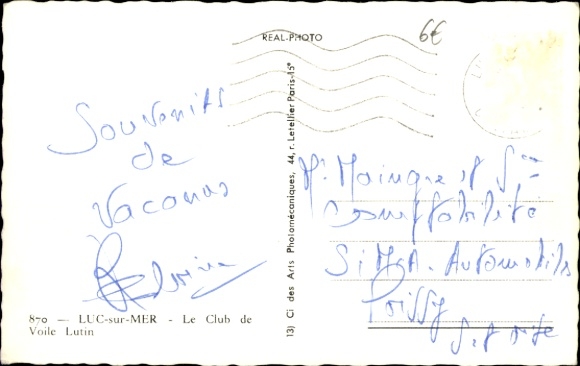 REAL-PHOTO
6€
Souvenirs
de
Vacances
Mr Maingre et Sce
Comptabilité
SiMCA. Automobiles
Poissy
S. et Oise
870 — LUC-sur-MER - Le Club de
Voile Lutin
13) Ci des Arts Photomécaniques, 44, r. Letellier Paris-15e